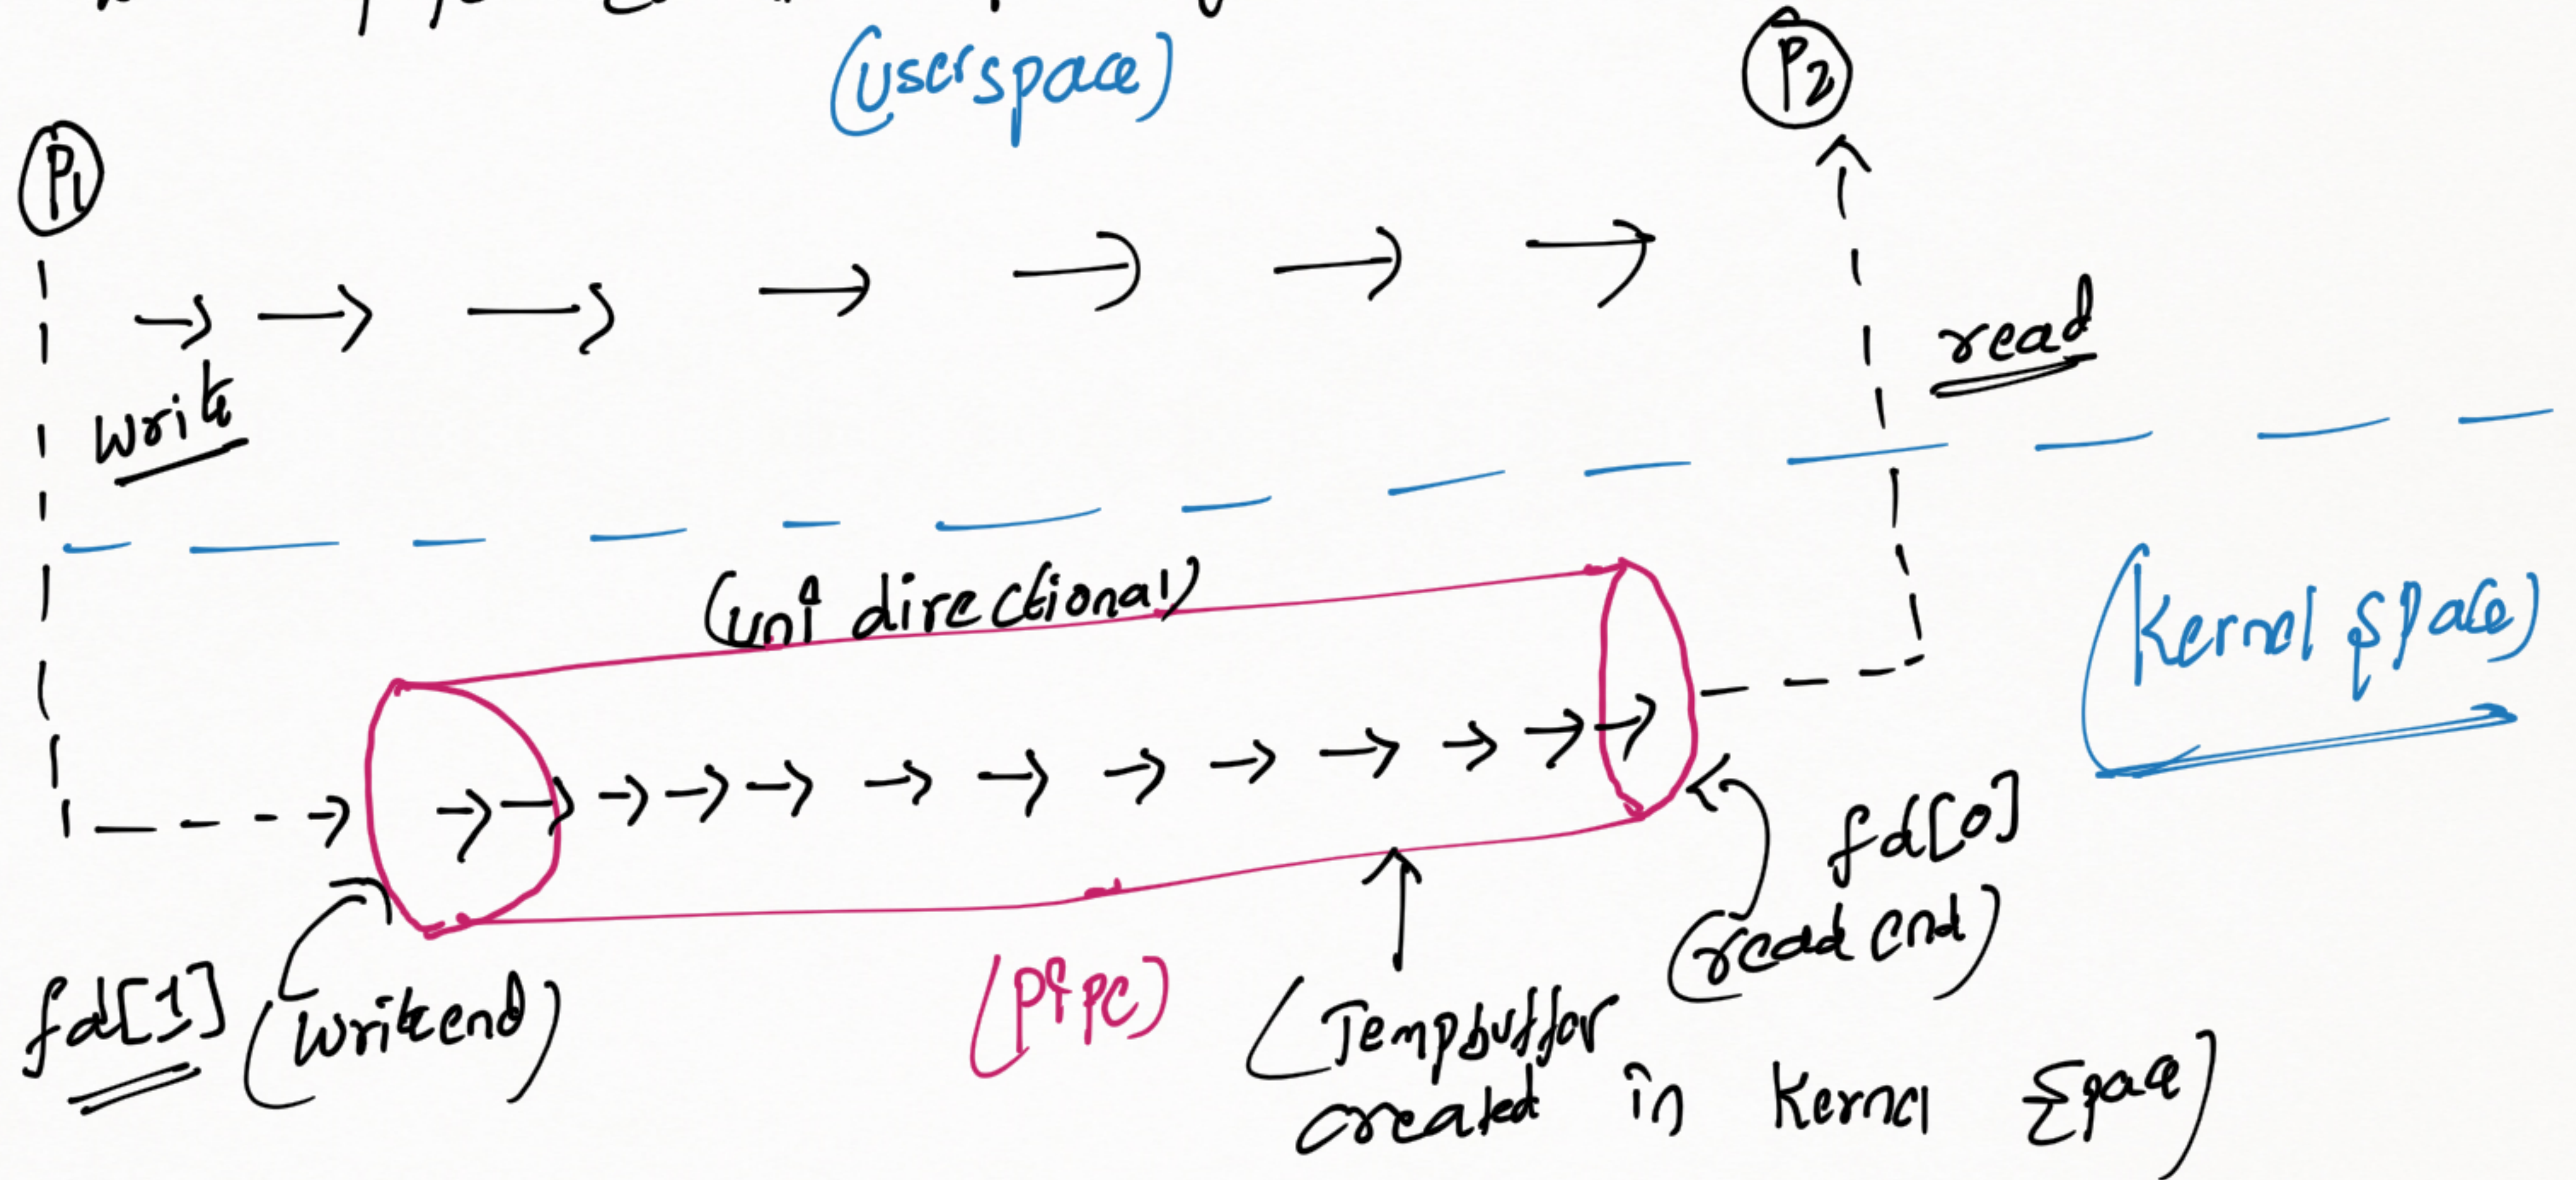 (userspace)
P2
P1
read
write
(uni directional)
(Kernel space)
fd[0]
(read end)
fd[1] (write end)
(pipe)
(Tempbuffer
created in Kernel space)